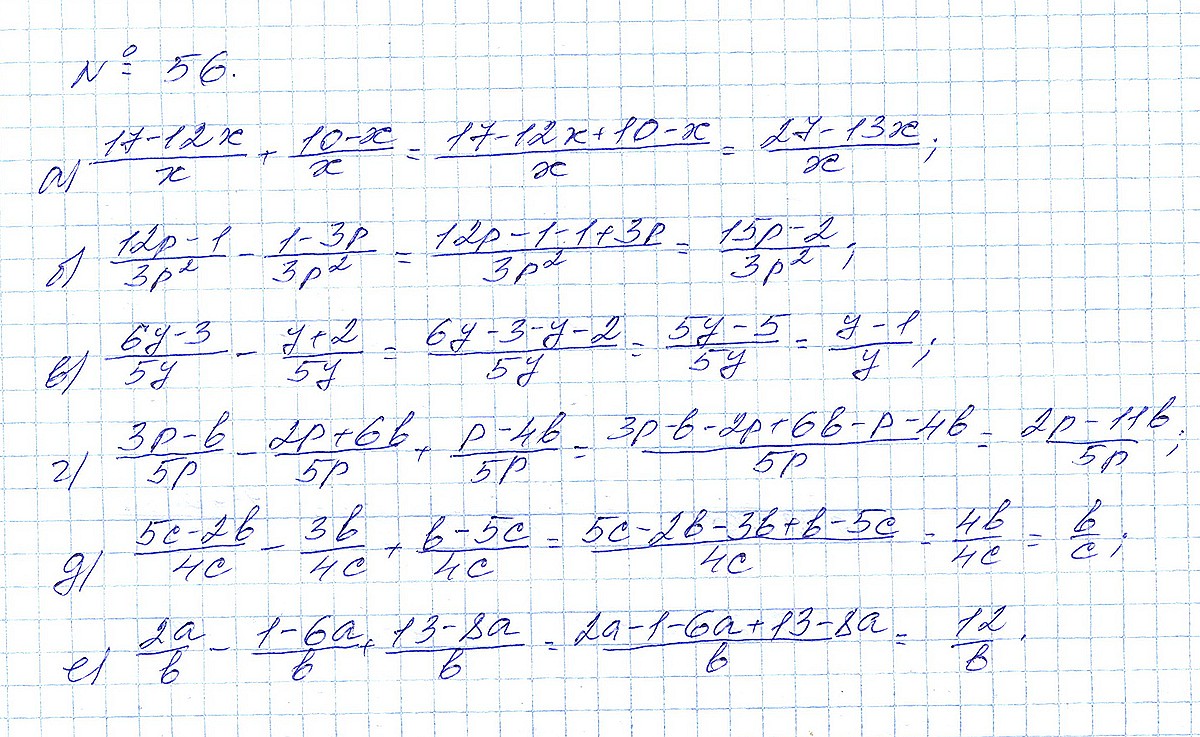 № 56.
а) (17-12x)/x + (10-x)/x = (17-12x+10-x)/x = (27-13x)/x;
б) (12p-1)/(3p²) - (1-3p)/(3p²) = (12p-1-1+3p)/(3p²) = (15p-2)/(3p²);
в) (6y-3)/(5y) - (y+2)/(5y) = (6y-3-y-2)/(5y) = (5y-5)/(5y) = (y-1)/y;
г) (3p-b)/(5p) - (2p+6b)/(5p) + (p-4b)/(5p) = (3p-b-2p+6b-p-4b)/(5p) = (2p-11b)/(5p);
д) (5c-2b)/(4c) - (3b)/(4c) + (b-5c)/(4c) = (5c-2b-3b+b-5c)/(4c) = (4b)/(4c) = b/c;
е) (2a)/b - (1-6a)/b + (13-8a)/b = (2a-1-6a+13-8a)/b = 12/b.